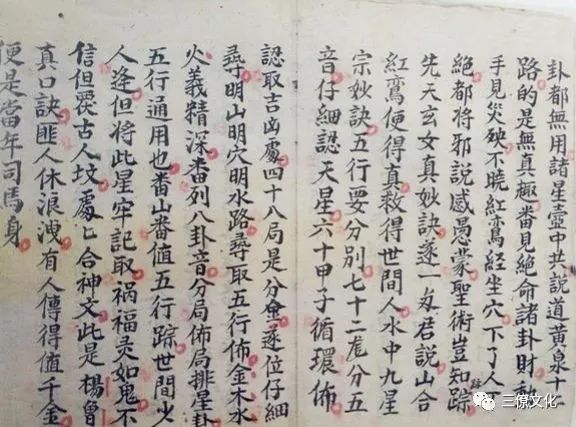 卦都無用諸星壼中共說道黄泉十二
路的是無真趣番見絶命諸卦財
手見災殃不曉紅鸞経坐穴下了人
踪
絶都将邪說感愚蒙聖術豈知踪
先天玄女真妙訣遂一為君說山合
紅鸞便得真救得世間人水中九星
宗妙訣五行要分别七十二龙分五
音仔細認天星六十甲子循環佈
認取吉凶處四十八局是分金遂位仔細
尋明山明穴明水路尋取五行佈金木水
火義精深番列八卦音分局佈局排星卦
五行通用也番山番值五行踪世間少
人逢但将此星牢記取祸福灵如鬼不
信但裉古人坟處匕合神文此是楊曾
真口訣匪人休浪洩有人傳得值千金
便是當年司馬身
三僚文化